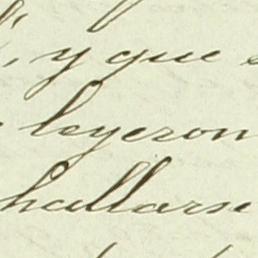 , y que
leyeron
hallarse